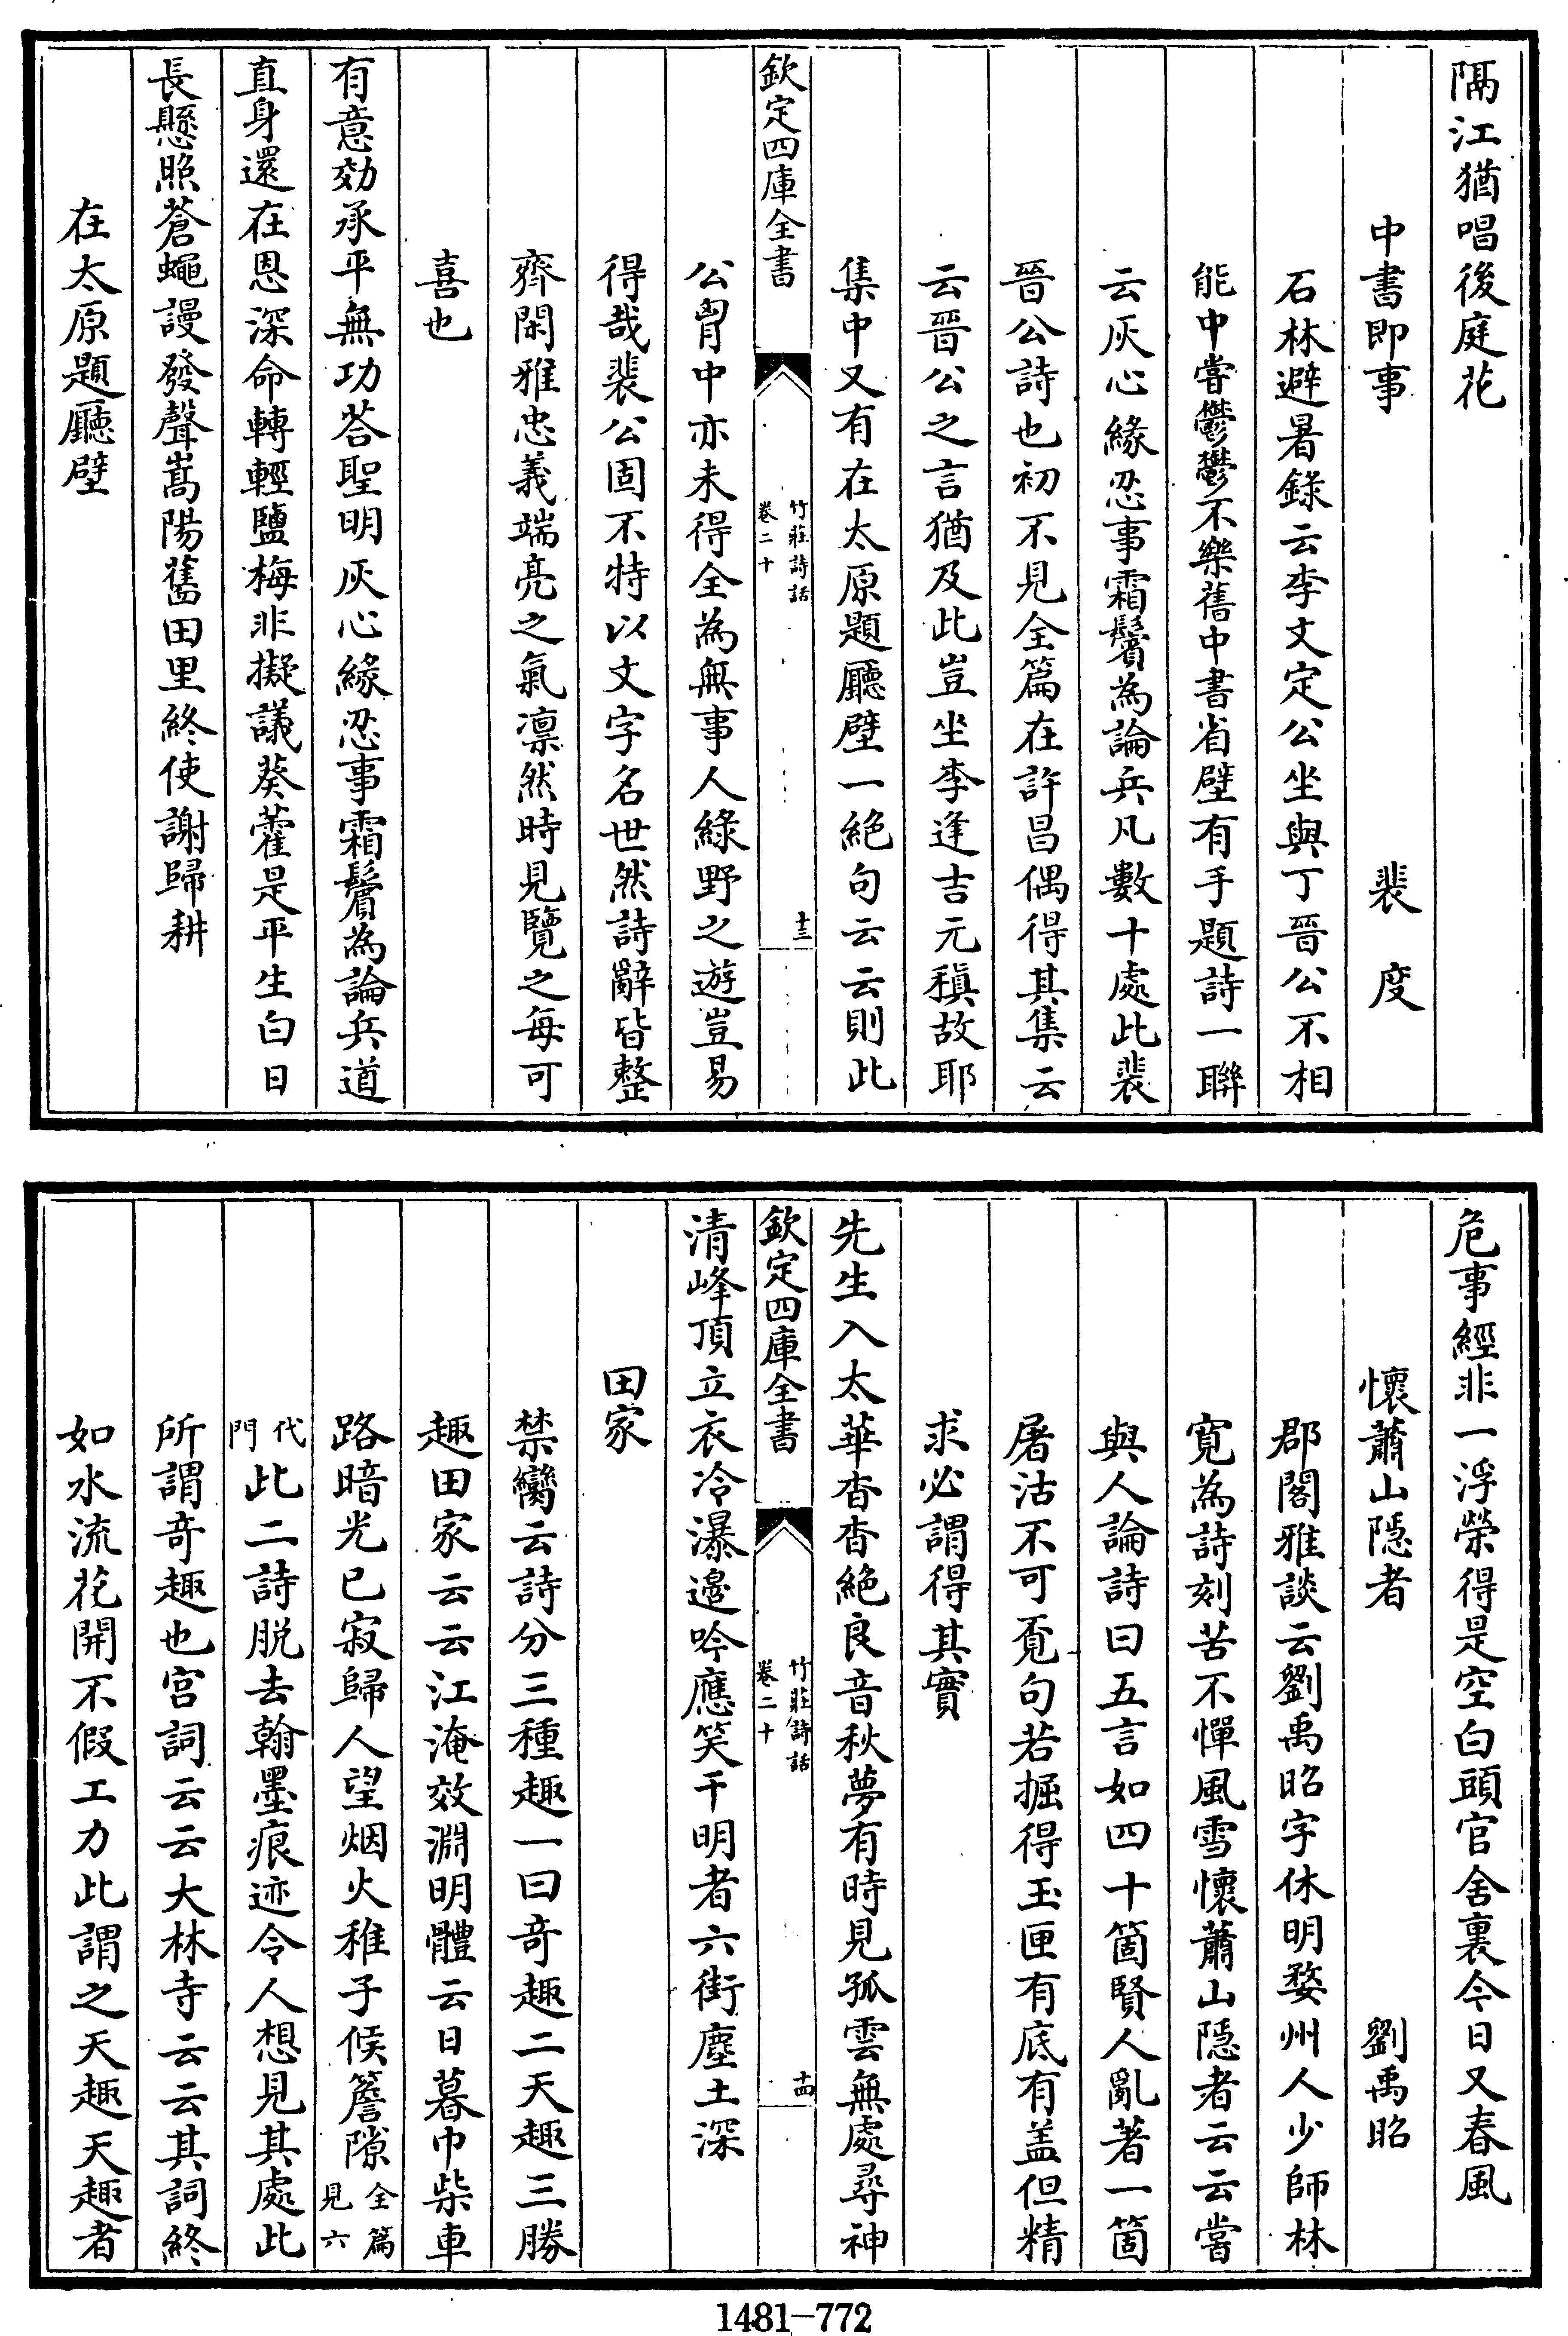 隔江猶唱後庭花
中書即事　裴度
石林避暑錄云李文定公坐與丁晉公不相
能中嘗鬱鬱不樂舊中書省壁有手題詩一聯
云灰心緣忍事霜鬢為論兵凡數十處此裴
晉公詩也初不見全篇在許昌偶得其集云
云晉公之言猶及此豈坐李逢吉元稹故耶
集中又有在太原題廳壁一絕句云云則此
欽定四庫全書
竹莊詩話
卷二十
十三
公胷中亦未得全為無事人綠野之遊豈易
得哉裴公固不特以文字名世然詩辭皆整
齊閑雅忠義端亮之氣凛然時見覽之每可
喜也
有意効承平無功荅聖明灰心緣忍事霜鬢為論兵道
直身還在恩深命轉輕鹽梅非擬議葵藿是平生白日
長懸照蒼蠅謾發聲嵩陽舊田里終使謝歸耕
在太原題廳壁
危事經非一浮榮得是空白頭官舍裏今日又春風
懷蕭山隱者　劉禹昭
郡閣雅談云劉禹昭字休明婺州人少師林
寛為詩刻苦不憚風雪懷蕭山隱者云云嘗
與人論詩曰五言如四十箇賢人亂著一箇
屠沽不可覔句若掘得玉匣有底有盖但精
求必謂得其實
先生入太華杳杳絕良音秋夢有時見孤雲無處尋神
欽定四庫全書
竹莊詩話
卷二十
十四
清峰頂立衣冷瀑邊吟應笑干明者六街塵土深
田家
禁臠云詩分三種趣一曰奇趣二天趣三勝
趣田家云云江淹效淵明體云日暮巾柴車
路暗光已寂歸人望烟火稚子候簷隙全篇見六
代門此二詩脱去翰墨痕迹令人想見其處此
所謂奇趣也宫詞云云大林寺云云其詞終
如水流花開不假工力此謂之天趣天趣者
1481-772